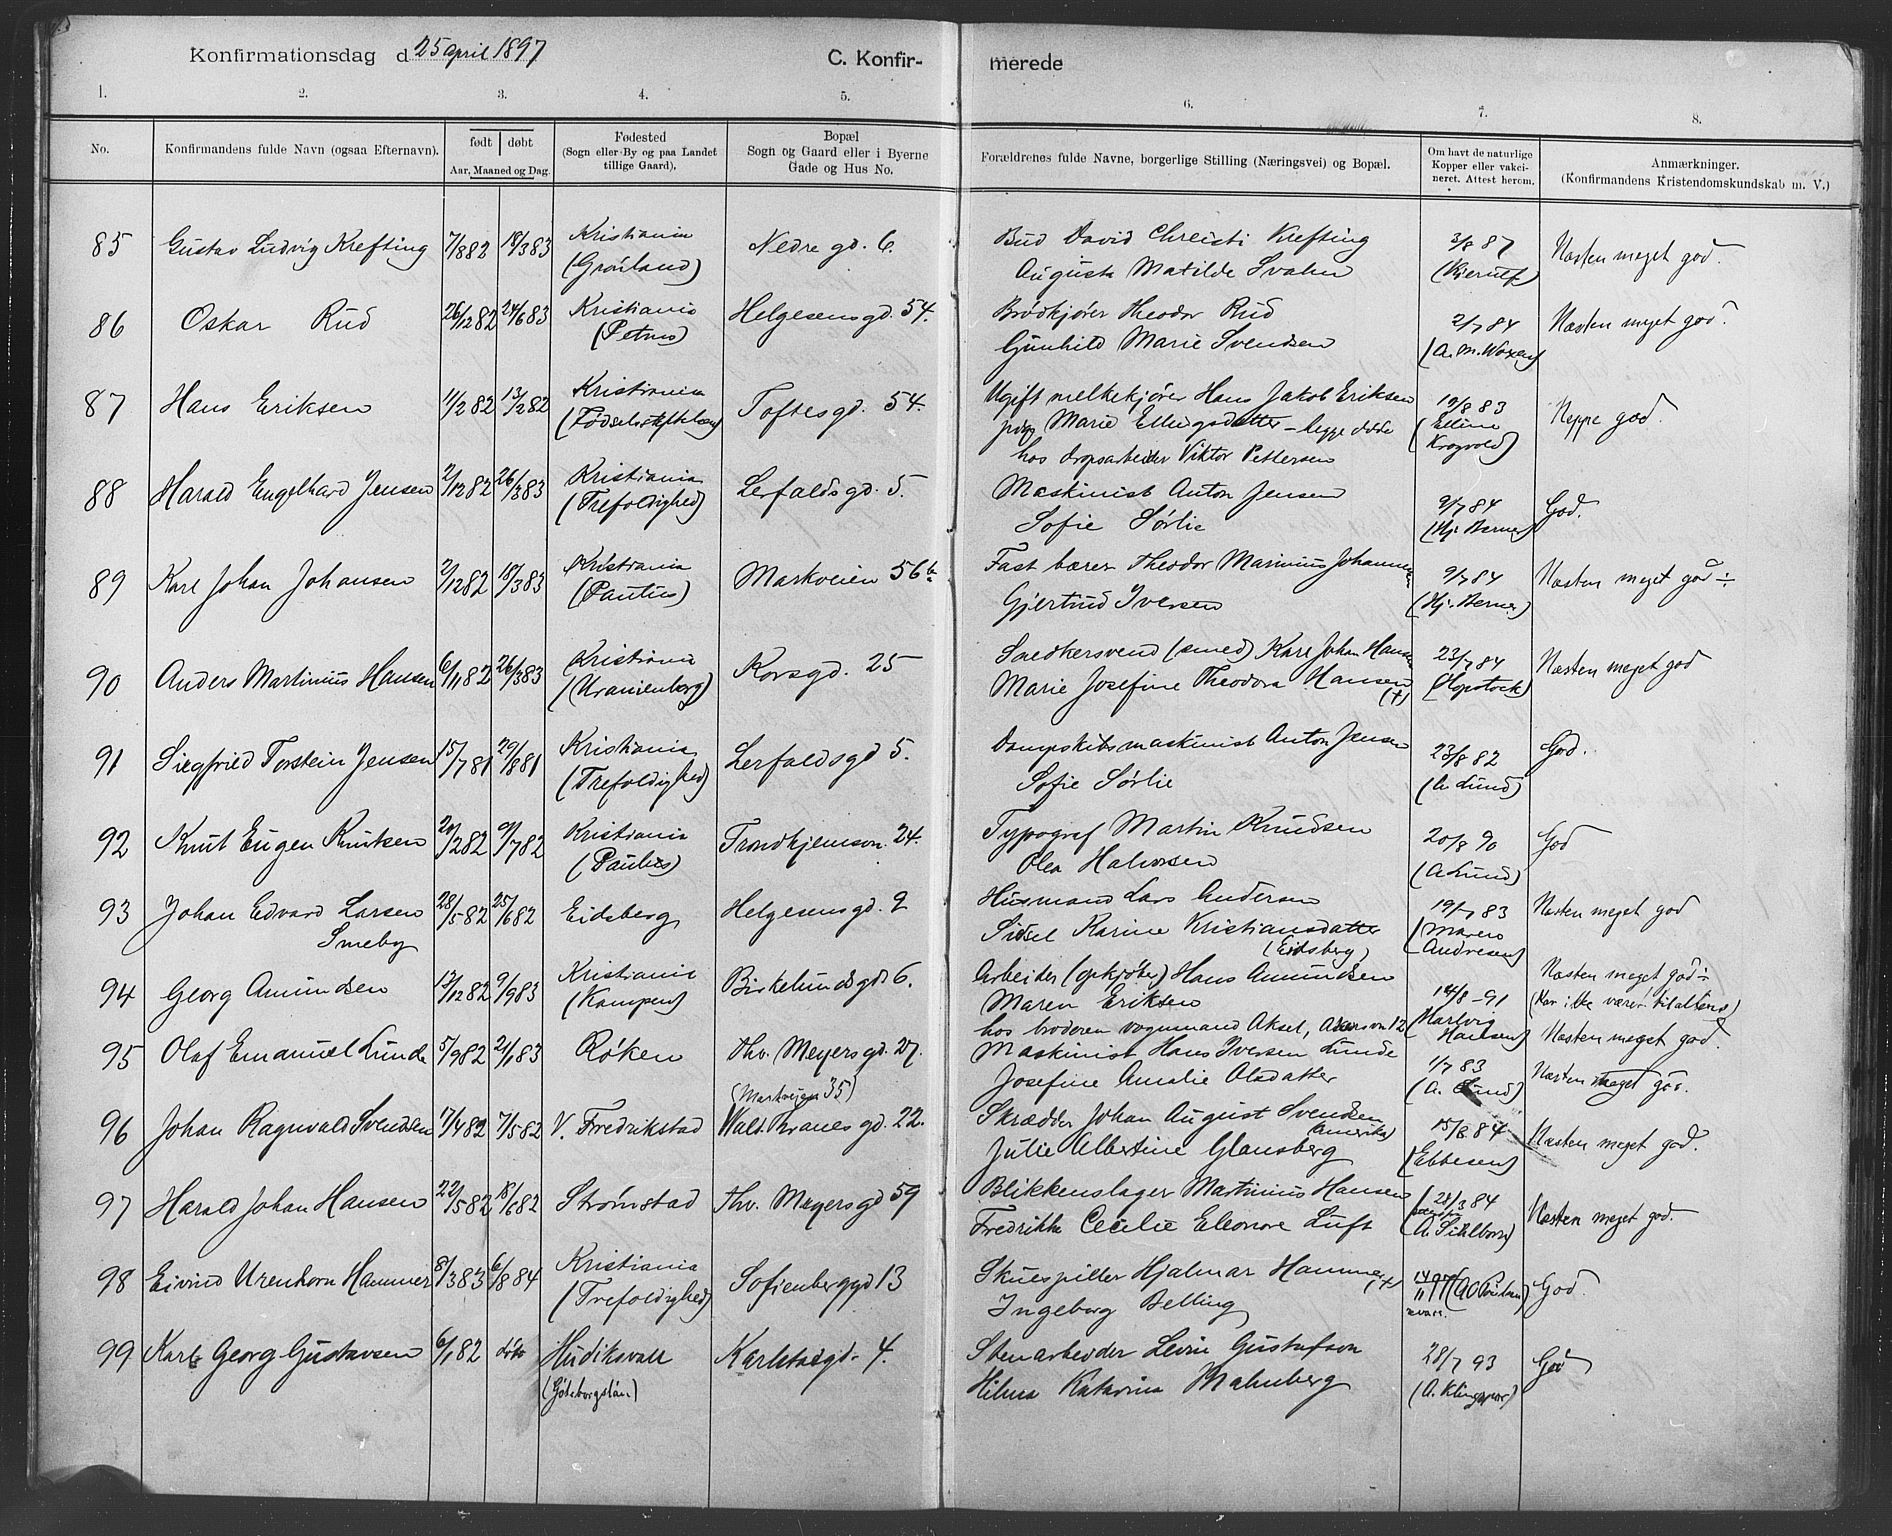 Konfirmationsdag d 25 april 1897
C. Konfir-
merede
1. 2. 3. 4. 5. 6. 7. 8.
No.
Konfirmandens fulde Navn (ogsaa Efternavn).
født døbt
Aar, Maaned og Dag.
Fødested
(Sogn eller By og paa Landet
tillige Gaard).
Bopæl
Sogn og Gaard eller i Byerne
Gade og Hus No.
Forældrenes fulde Navne, borgerlige Stilling (Næringsvei) og Bopæl.
Om havt de naturlige
Kopper eller vakci-
neret. Attest herom.
Anmærkninger.
(Konfirmandens Kristendomskundskab m. V.)
85 Gustav Ludvig Krefting 7/8 82 18/3 83 Kristiania Nedre gd. 6. Bud David Christi Krefting 3/8 87 Næsten meget god.
(Grønland) Augusta Matilde Svahn (Kjerulf)
86 Oskar Rud 26/12 82 24/6 83 Kristiania Helgesensgd. 54. Brødkjører Theodor Rud 2/7 84 Næsten meget god.
(Petrus) Gunhild Marie Svendsen (A. M. Woxen)
87 Hans Eriksen 11/2 82 13/2 82 Kristiania Toftesgd. 54. Ugift melkekjører Hans Jakob Eriksen 19/8 83 Neppe god.
pige Marie Ellingsdatter - begge døde (Elline
hos dropsarbeider Viktor Pettersen Krogvold)
88 Harald Engelhard Jensen 2/12 82 26/3 83 Kristiania Lerfaldsgd. 5. Maskinist Anton Jensen 9/7 84 God.
(Trefoldighed) Sofie Sørlie (Hj. Berner)
89 Karl Johan Johansen 2/12 82 18/3 83 Kristiania Markveien 56 b. Fast bærer Theodor Marinius Johannesen 9/7 84 Næsten meget god ÷
(Paulus) Gjertrud Iversen (Hj. Berner)
90 Anders Martinius Hansen 6/11 82 26/3 83 Kristiania Korsgd. 25 Snedkersvend (smed) Karl Johan Hansen 23/7 84 Næsten meget god
(Uranienborg) Marie Josefine Theodora Hansen (+) (Hopstock)
91 Siegfried Torstein Jensen 15/7 81 29/8 81 Kristiania Lerfaldsgd 5. Dampskibsmaskinist Anton Jensen 23/8 82 God.
(Trefoldighed) Sofie Sørlie (A. Lund)
92 Knut Eugen Knutsen 20/2 82 9/7 82 Kristiania Trondhjemsv. 24. Typograf Martin Knudsen 20/8 90 God
(Paulus) Olea Halvorsen (A Lund)
93 Johan Edvard Larsen 28/5 82 25/6 82 Eidsberg Helgesensgd. 9 Husmand Lars Andersen 19/7 83 Næsten meget god
Smeby Sidsel Karine Kristiansdatter (Maren
(Eidsberg) Andresen)
94 Georg Amundsen 13/12 82 9/9 83 Kristiania Birkelundsgd 6. Arbeider (opkjøber) Hans Amundsen 14/8 - 91 Næsten meget god ÷
(Kampen) Maren Eriksen (Hartvig (Kan ikke være tilstede)
hos broderen vognmand Aksel, Akersvn 12 Hansen)
95 Olaf Emanuel Lunde 5/9 82 21/1 83 Røken Thv. Meyersgd. 27. Maskinist Hans Iversen Lunde 1/7 83 Næsten meget god.
Josefine Amalie Olsdatter (A. Lund) Næsten meget god.
(Markveien 35)
96 Johan Ragnvald Svendsen 17/4 82 7/5 82 V. Fredrikstad Wald. Thranesgd. 22. Skrædder Johan August Svendsen 15/8 84 Næsten meget god.
(Amerika)
Julie Albertine Glansberg (Ebbesen)
97 Harald Johan Hansen 22/5 82 18/6 82 Strømstad Thv. Meyersgd 59 Blikkenslager Martinius Hansen 28/3 84 Næsten meget god.
Fredrikke Cecilie Eleonore Luft (A. Sihlbom)
98 Eivind Urenhorn Hammer 8/3 83 6/8 84 Kristiania Sofienberggd 13 Skuespiller Hjalmar Hammer (+) God.
(Trefoldighed) Ingeborg Belling
99 Karl Georg Gustavsen 6/1 82 Hudiksvall Karlstadgd. 4. Stenarbeider Levin Gustafson 28/7 93 God
(Göteborgslän) Hilma Katarina Malmberg